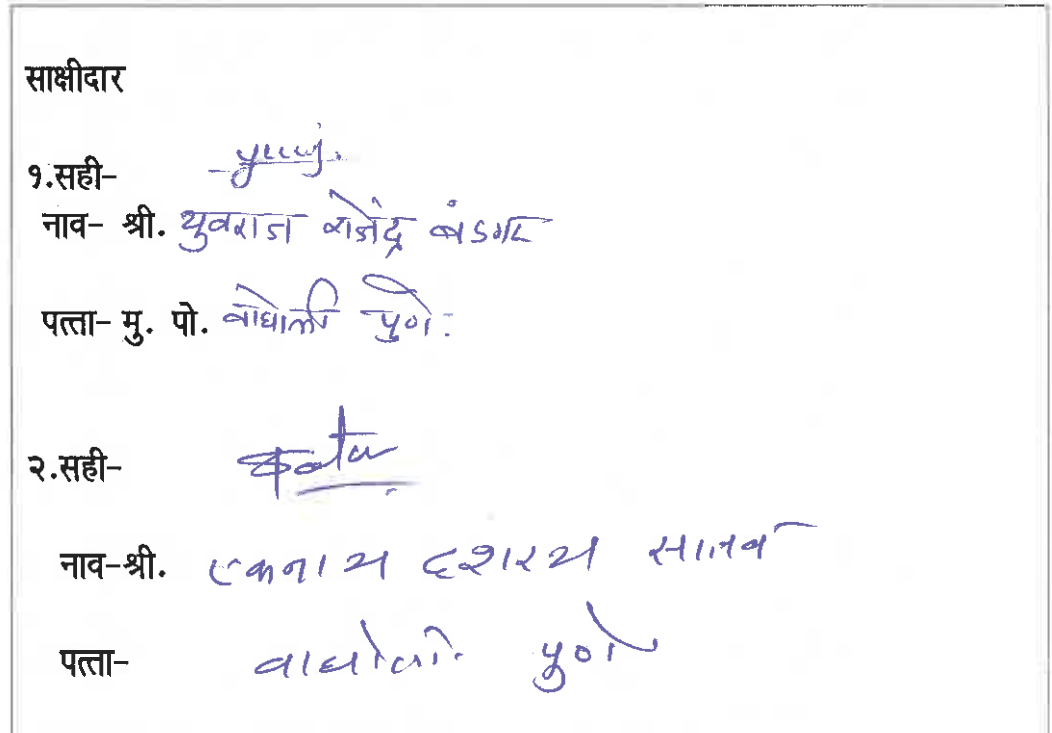 साक्षीदार
१.सही-
नाव- श्री. युवराज राजेंद्र बंडगर
पत्ता- मु. पो. वाघोली पुणे.
२.सही-
नाव-श्री. एकनाथ दशरथ सातव
पत्ता- वाघोली पुणे